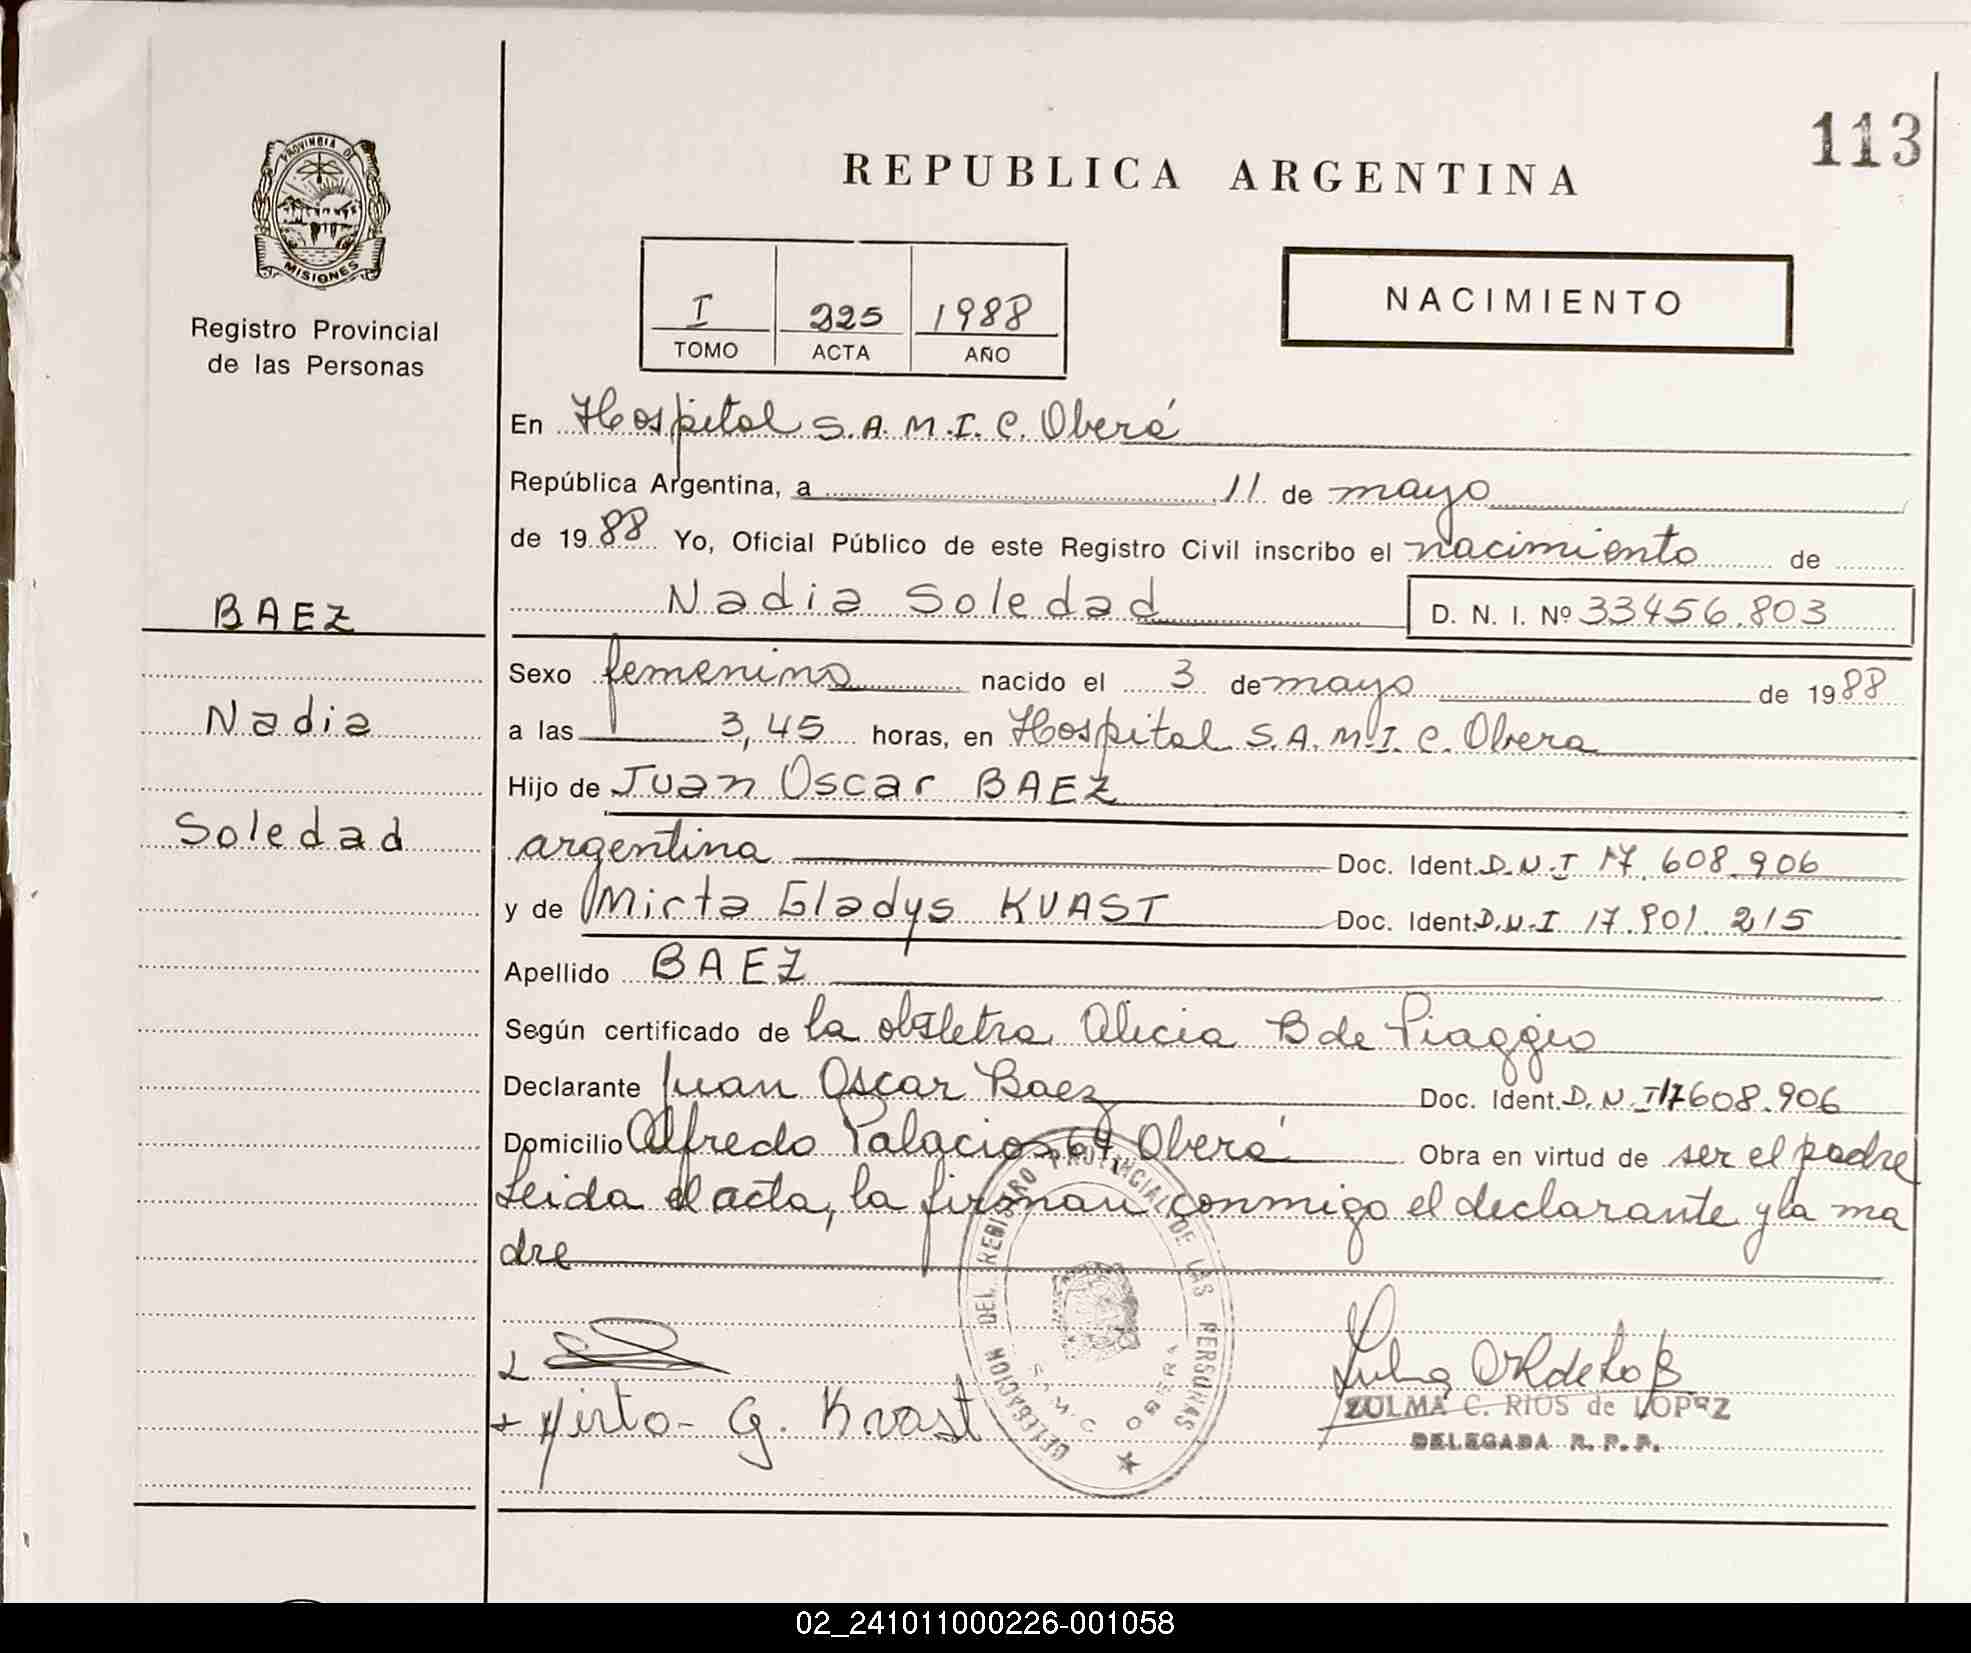 113
REPUBLICA ARGENTINA
PROVINCIA DE
MISIONES
Registro Provincial
de las Personas
I 225 1988
TOMO ACTA AÑO
NACIMIENTO
En Hospital S.A.M.I.C. Oberá
República Argentina, a 11 de mayo
de 1988 Yo, Oficial Público de este Registro Civil inscribo el nacimiento de
Nadia Soledad D. N. I. Nº 33456.803
BAEZ
Nadia
Soledad
Sexo femenino nacido el 3 de mayo de 1988
a las 3,45 horas, en Hospital S.A.M.I.C. Obera
Hijo de Juan Oscar BAEZ
argentina Doc. Ident. D.N.I 17.608.906
y de Mirta Gladys KVAST Doc. Ident. D.N.I 17.901.215
Apellido BAEZ
Según certificado de la obstetra Alicia B de Piaggio
Declarante Juan Oscar Baez Doc. Ident. D.N.I 17608.906
Domicilio Alfredo Palacios Oberá Obra en virtud de ser el padre
Leida el acta, la firman conmigo el declarante y la ma
dre
DELEGACION DEL REGISTRO PROVINCIAL DE LAS PERSONAS
S.A.M.I.C. OBERA
Mirta G. Kvast
ZULMA C. RIOS de LOPEZ
DELEGADA R.P.P.
02_241011000226-001058